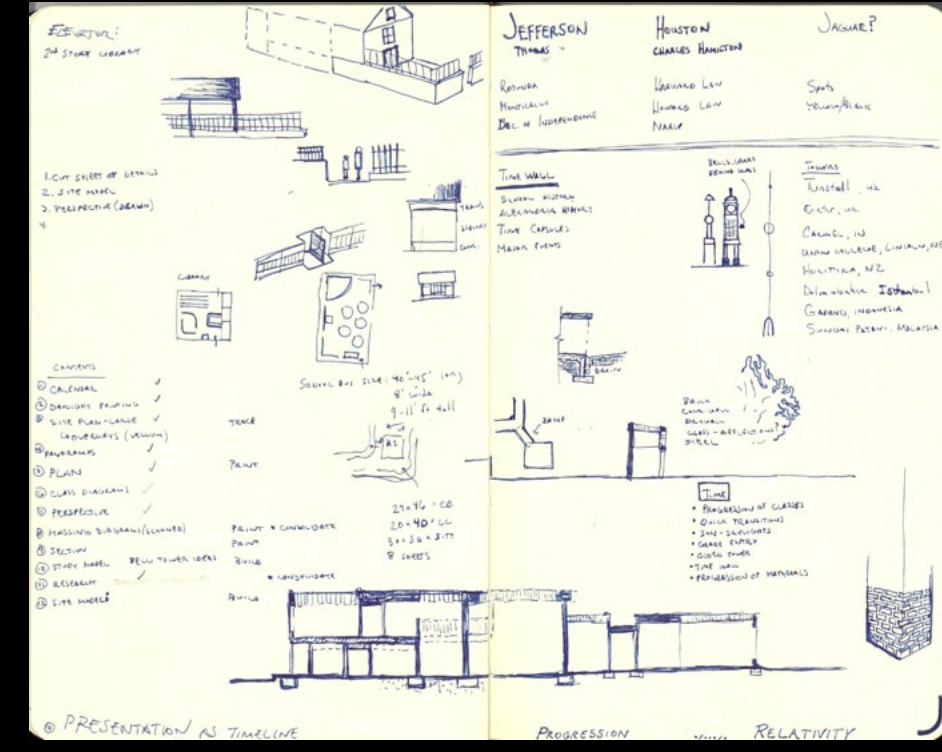 ELEVATOR:
2ND STORY LIBRARY
1. CUT SHEET OF DETAILS
2. SITE MODEL
3. PERSPECTIVE (DRAWN)
4.
TRANS.
LIBRARY
CONTENTS
① CALENDAR ✓
② DAYLIGHT PAINTING ✓
③ SITE PLAN - LARGE ✓
OVERLAYS (VELLUM)
④ PANORAMAS ✓
⑤ PLAN ✓
⑥ CLASS DIAGRAMS ✓
⑦ PERSPECTIVE ✓
⑧ MASSING DIAGRAMS (SCANNED)
⑨ SECTION
⑩ STUDY MODEL BELL TOWER IDEAS
⑪ RESEARCH ✓
⑫ SITE MODEL
TRACE
PRINT
PRINT * CONSOLIDATE
PRINT
BUILD
* CONSOLIDATE
BUILD
SCHOOL BUS SIZE: 40'-45' LONG
8' WIDE
9-11' FT TALL
20 x 40 · CC
30 x 36 x SITE
8 SHEETS
PRESENTATION AS TIMELINE
JEFFERSON
THOMAS
ROTUNDA
MONTICELLO
DEC. OF INDEPENDENCE
HOUSTON
CHARLES HAMILTON
HARVARD LAW
HOWARD LAW
NAACP
JAGUAR?
SPOTS
YELLOW/BLACK
TIME WALL
SCHOOL HISTORY
ALEXANDRIA HISTORY
TIME CAPSULES
MAJOR EVENTS
BEHIND GLASS
TOWERS
Tunstall, UK
Exeter, UK
CARMEL, IN
UNION COLLEGE, LINCOLN, NE
HOKITIKA, NZ
Dolmabahce Istanbul
GADANG, INDONESIA
SUNGAI PETANI, MALAYSIA
DRAIN
RAMP
BRICK
DRYWALL
GLASS - REFLECTIONS?
STEEL
TIME
• PROGRESSION OF CLASSES
• QUICK TRANSITIONS
• SUN - SKYLIGHTS
• GRADE ENTRY
• CLOCK TOWER
• TIME WALL
• PROGRESSION OF MATERIALS
PROGRESSION
RELATIVITY